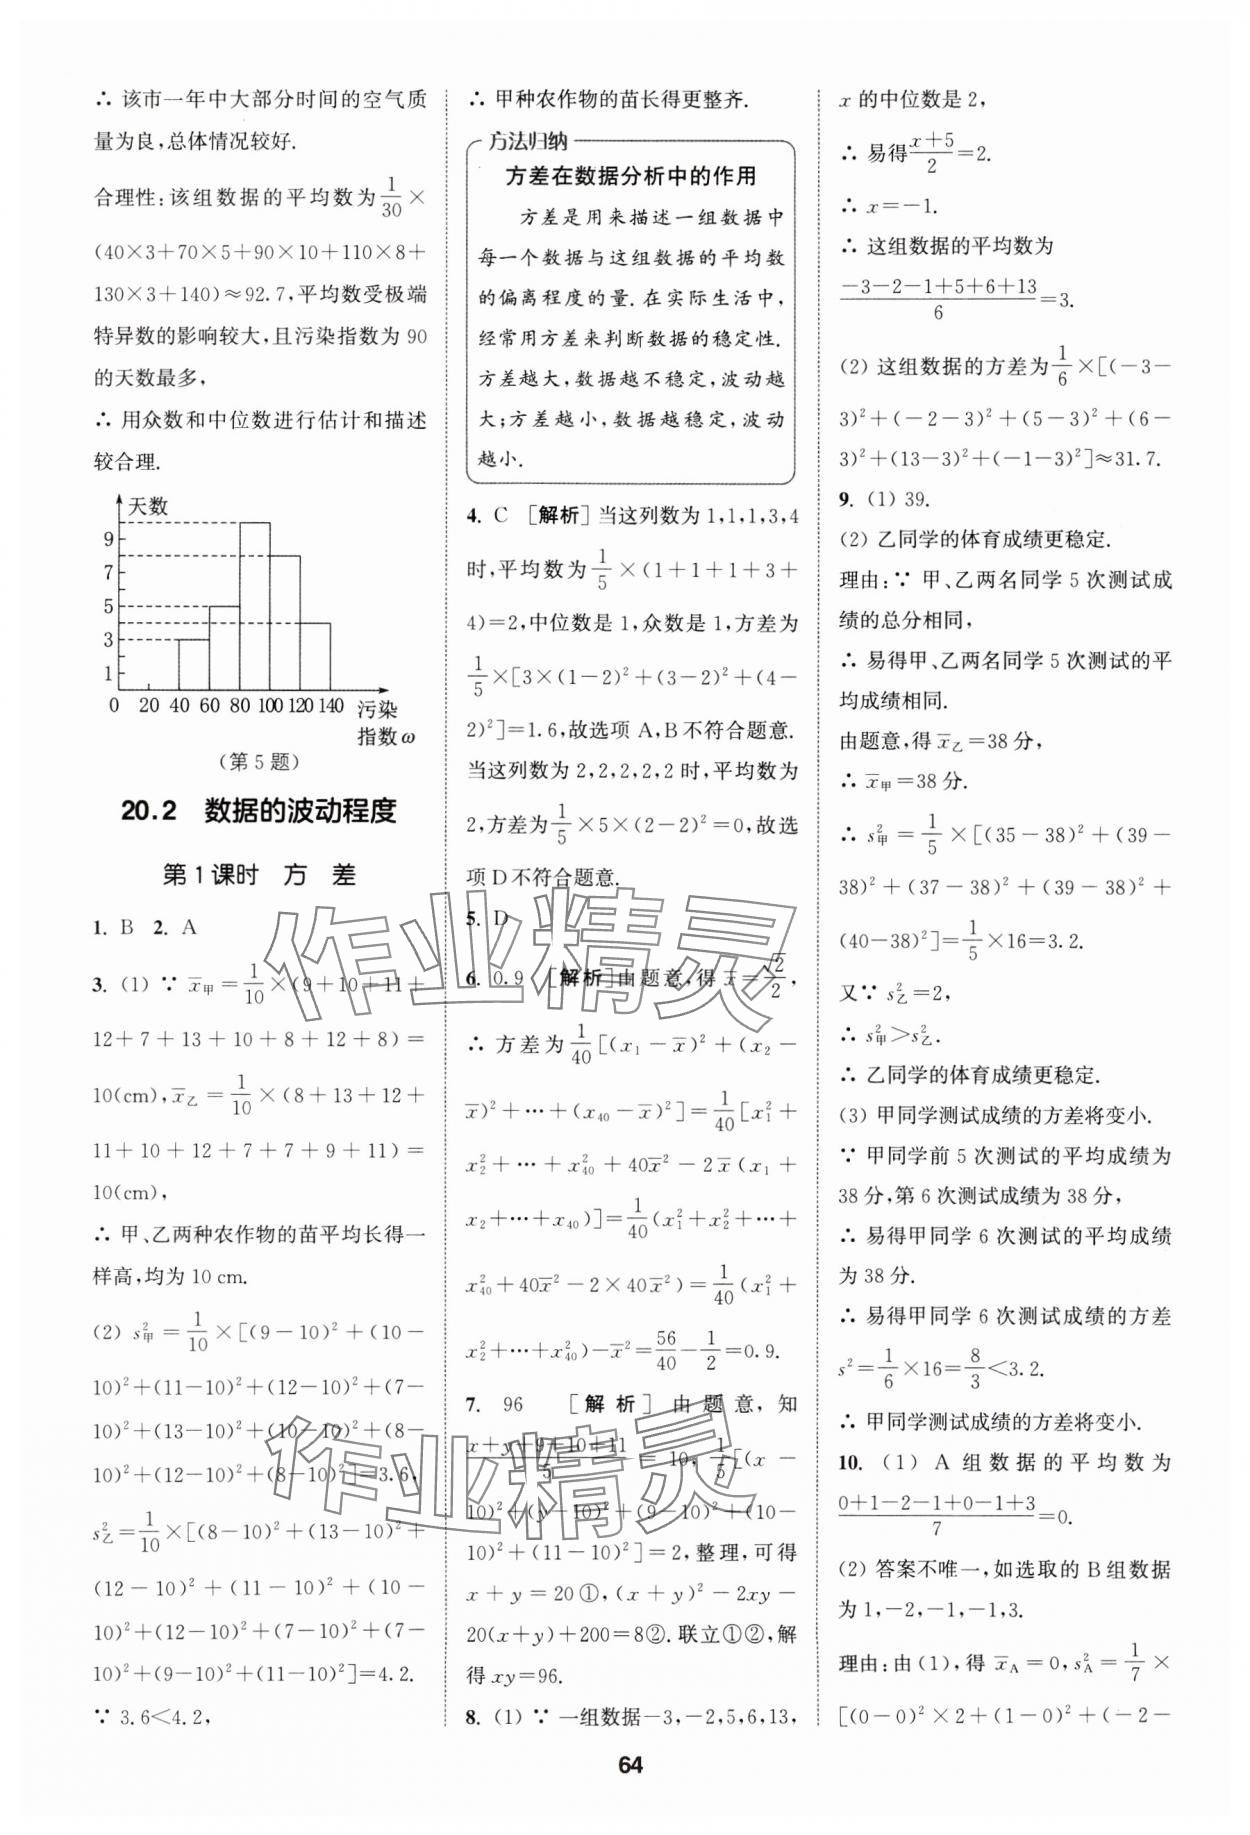 ∴ 该市一年中大部分时间的空气质
量为良,总体情况较好.
合理性:该组数据的平均数为1/30×
(40×3+70×5+90×10+110×8+
130×3+140)≈92.7,平均数受极端
特异数的影响较大,且污染指数为 90
的天数最多,
∴ 用众数和中位数进行估计和描述
较合理.
天数
9
7
5
3
1
0 20 40 60 80 100 120 140 污染
指数ω
(第 5 题)
20.2 数据的波动程度
第 1 课时 方 差
1. B 2. A
3. (1) ∵ x̄甲=1/10×(9+10+11+
12+7+13+10+8+12+8)=
10(cm),x̄乙=1/10×(8+13+12+
11+10+12+7+7+9+11)=
10(cm),
∴ 甲、乙两种农作物的苗平均长得一
样高,均为 10 cm.
(2) s²甲=1/10×[(9-10)²+(10-
10)²+(11-10)²+(12-10)²+(7-
10)²+(13-10)²+(10-10)²+(8-
10)²+(12-10)²+(8-10)²]=3.6,
s²乙=1/10×[(8-10)²+(13-10)²+
(12-10)²+(11-10)²+(10-
10)²+(12-10)²+(7-10)²+(7-
10)²+(9-10)²+(11-10)²]=4.2.
∵ 3.6<4.2,
∴ 甲种农作物的苗长得更整齐.
方法归纳
方差在数据分析中的作用
方差是用来描述一组数据中
每一个数据与这组数据的平均数
的偏离程度的量.在实际生活中,
经常用方差来判断数据的稳定性.
方差越大,数据越不稳定,波动越
大;方差越小,数据越稳定,波动
越小.
4. C [解析]当这列数为 1,1,1,3,4
时,平均数为1/5×(1+1+1+3+
4)=2,中位数是 1,众数是 1,方差为
1/5×[3×(1-2)²+(3-2)²+(4-
2)²]=1.6,故选项 A,B 不符合题意.
当这列数为 2,2,2,2,2 时,平均数为
2,方差为1/5×5×(2-2)²=0,故选
项 D 不符合题意.
5. D
6. 0.9 [解析]由题意,得 x̄=√2/2,
∴ 方差为1/40[(x₁-x̄)²+(x₂-
x̄)²+⋯+(x₄₀-x̄)²]=1/40[x₁²+
x₂²+⋯+x₄₀²+40x̄²-2x̄(x₁+
x₂+⋯+x₄₀)]=1/40(x₁²+x₂²+⋯+
x₄₀²+40x̄²-2×40x̄²)=1/40(x₁²+
x₂²+⋯+x₄₀²)-x̄²=56/40-1/2=0.9.
7. 96 [解析]由题意,知
(x+y+9+10+11)/5=10,1/5[(x-
10)²+(y-10)²+(9-10)²+(10-
10)²+(11-10)²]=2,整理,可得
x+y=20①,(x+y)²-2xy-
20(x+y)+200=8②.联立①②,解
得 xy=96.
8. (1) ∵ 一组数据-3,-2,5,6,13,
x 的中位数是 2,
∴ 易得(x+5)/2=2.
∴ x=-1.
∴ 这组数据的平均数为
(-3-2-1+5+6+13)/6=3.
(2) 这组数据的方差为1/6×[(-3-
3)²+(-2-3)²+(5-3)²+(6-
3)²+(13-3)²+(-1-3)²]≈31.7.
9. (1) 39.
(2) 乙同学的体育成绩更稳定.
理由:∵ 甲、乙两名同学 5 次测试成
绩的总分相同,
∴ 易得甲、乙两名同学 5 次测试的平
均成绩相同.
由题意,得 x̄乙=38 分,
∴ x̄甲=38 分.
∴ s²甲=1/5×[(35-38)²+(39-
38)²+(37-38)²+(39-38)²+
(40-38)²]=1/5×16=3.2.
又∵ s²乙=2,
∴ s²甲>s²乙.
∴ 乙同学的体育成绩更稳定.
(3) 甲同学测试成绩的方差将变小.
∵ 甲同学前 5 次测试的平均成绩为
38 分,第 6 次测试成绩为 38 分,
∴ 易得甲同学 6 次测试的平均成绩
为 38 分.
∴ 易得甲同学 6 次测试成绩的方差
s²=1/6×16=8/3<3.2.
∴ 甲同学测试成绩的方差将变小.
10. (1) A 组数据的平均数为
(0+1-2-1+0-1+3)/7=0.
(2) 答案不唯一,如选取的 B 组数据
为 1,-2,-1,-1,3.
理由:由(1),得 x̄A=0,s²A=1/7×
[(0-0)²×2+(1-0)²+(-2-
64
作业精灵
作业精灵